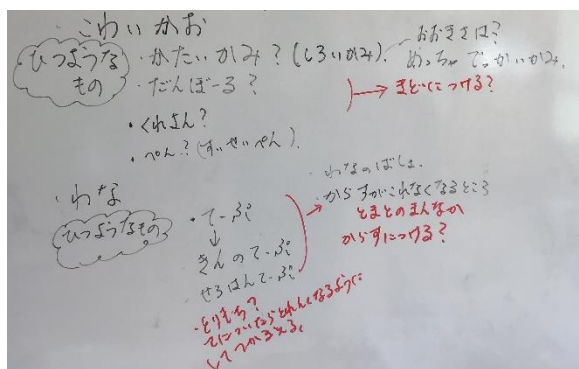 ・こわいかお
ひつような
もの
・かたいかみ？(しろいかみ).
おおきさは？
めっちゃでっかいかみ.
・だんぼーる？
→まどにつける？
・くれよん？
・ぺん？(すいせいぺん).
・わな
ひつようなもの
・てーぷ
↓
きんのてーぷ
せろはんてーぷ
・わなのばしょ.
・からすがこれなくなるところ
とまとのまんなか
からすにつける？
・とりもち？
てについたらとれんくなるように
してつかまえる。